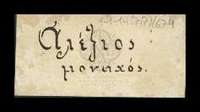 Ἀλέξιος
μοναχός.